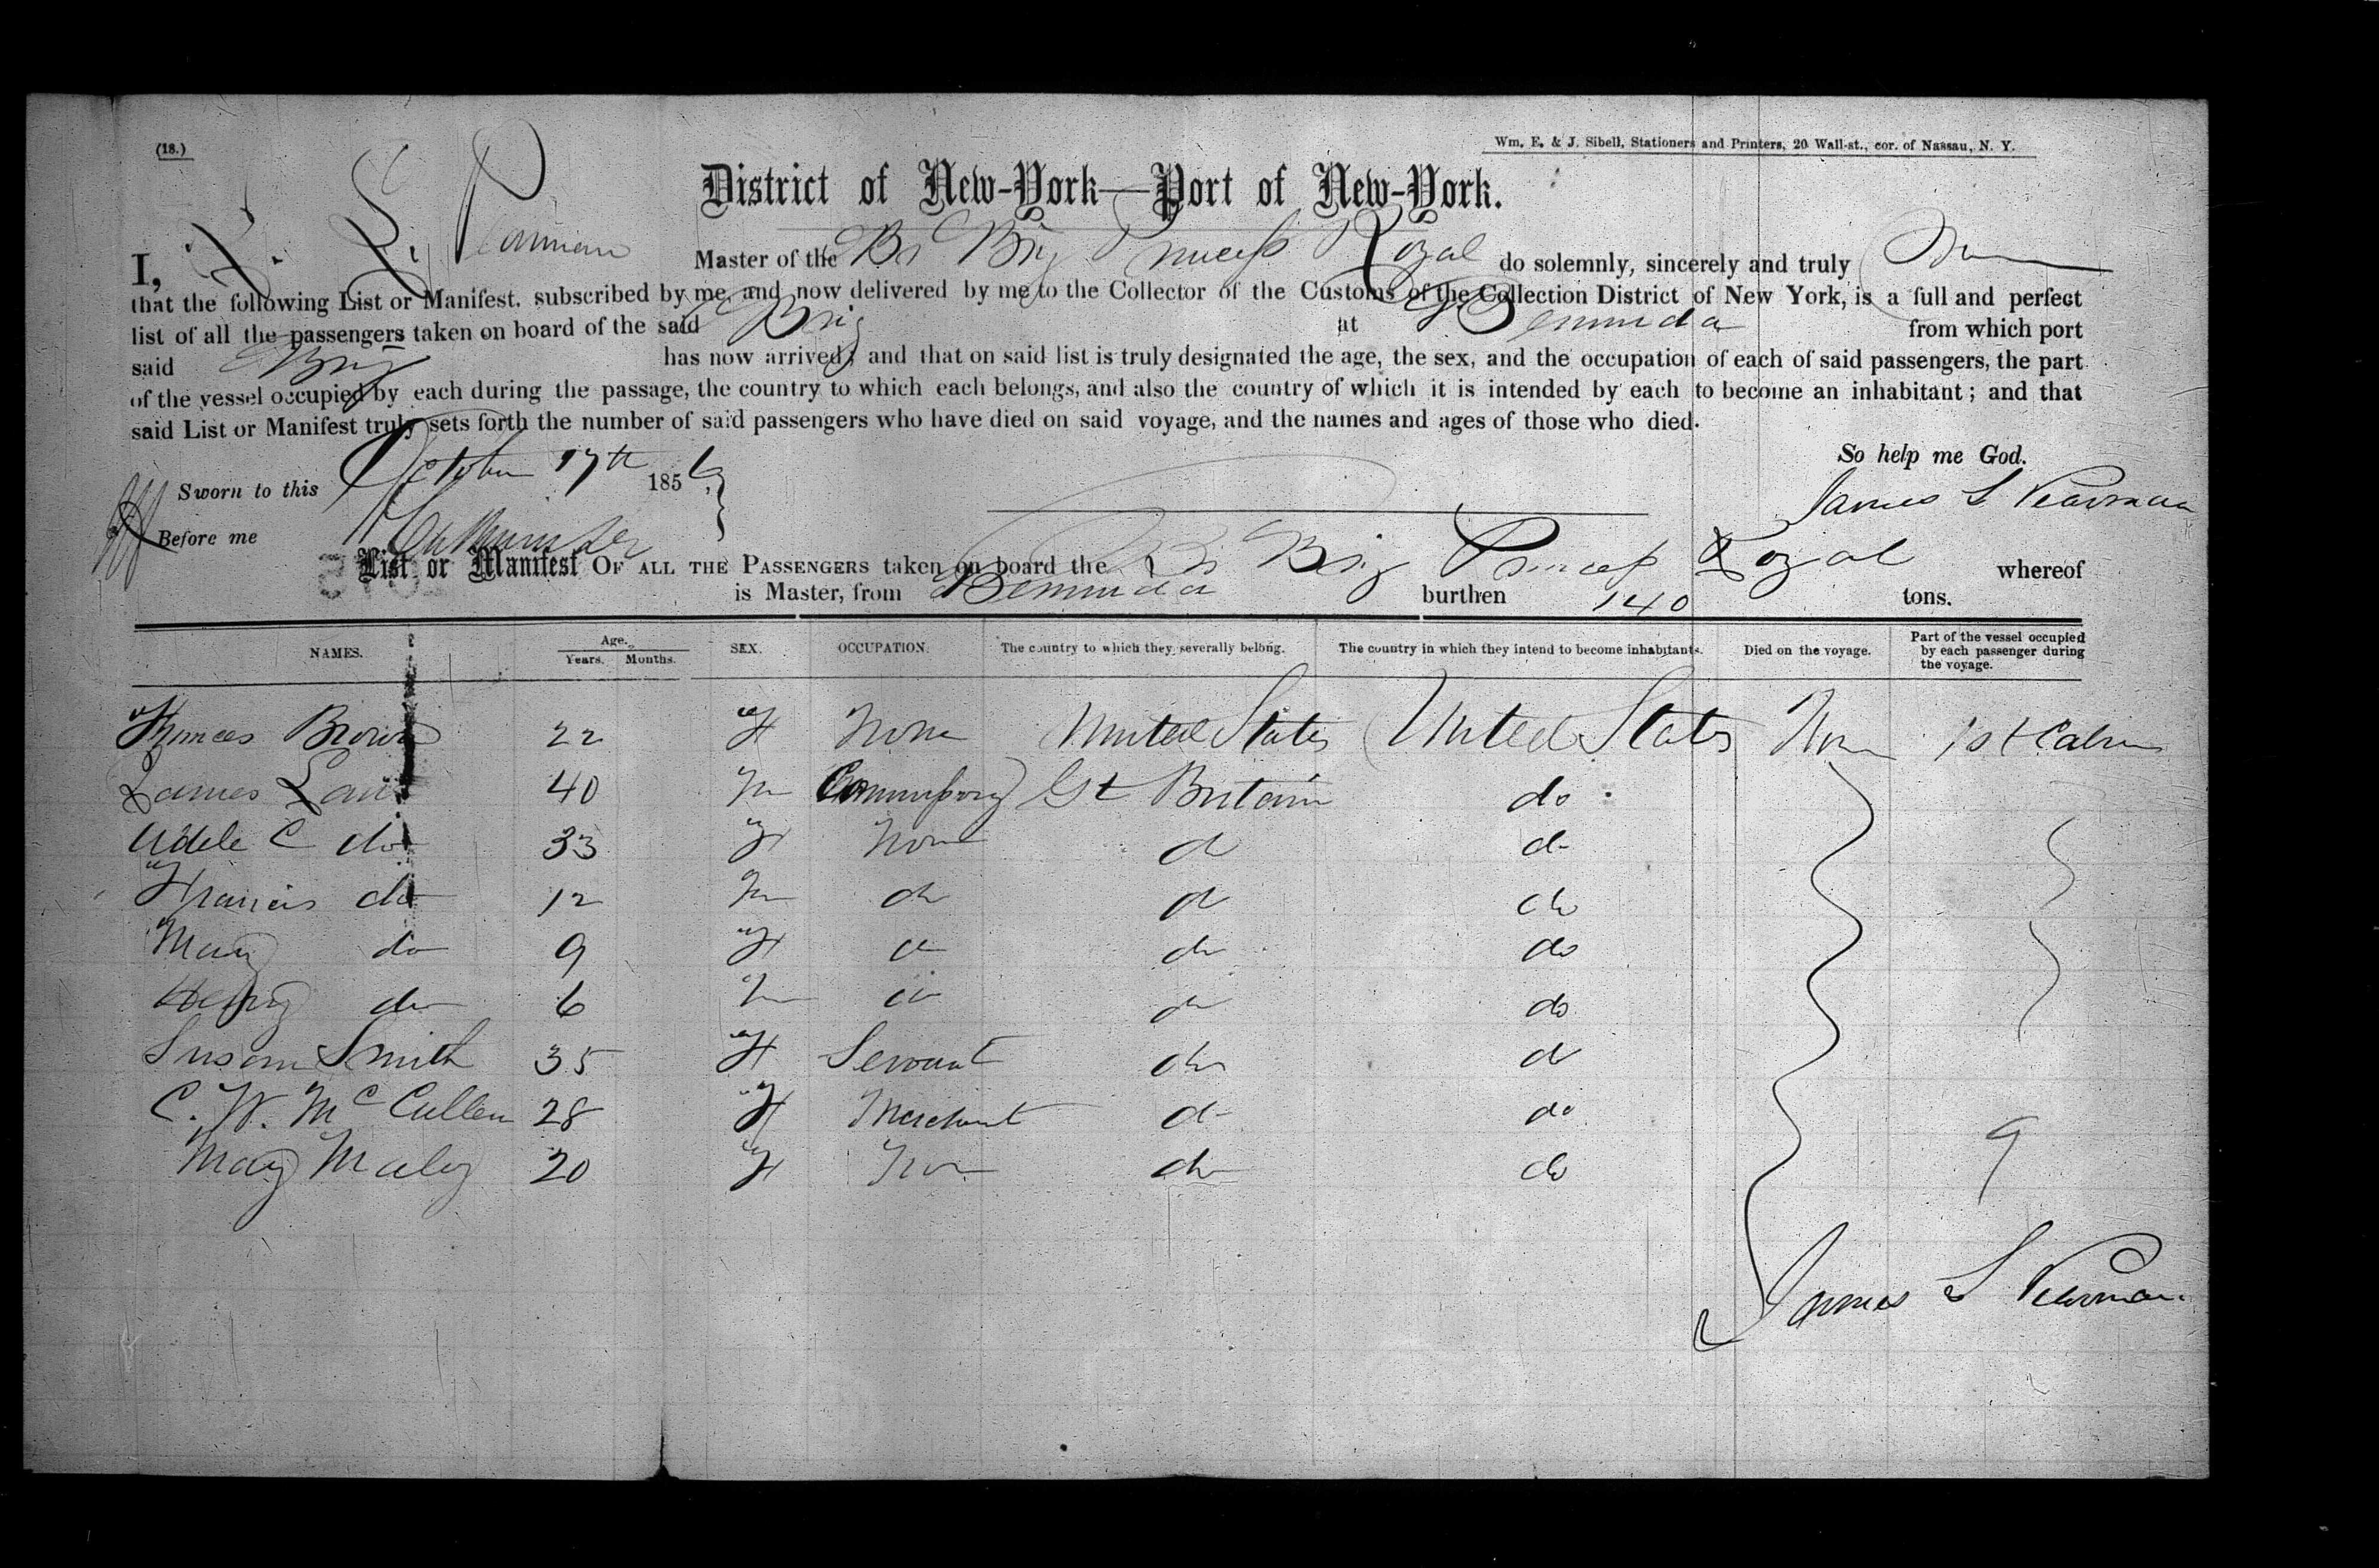 (18.)
Wm. E. & J. Sibell, Stationers and Printers, 20 Wall-st., cor. of Nassau, N. Y.
District of New-York—Port of New-York.
I, Master of the Br Brig Princess Royal do solemnly, sincerely and truly
that the following List or Manifest, subscribed by me, and now delivered by me to the Collector of the Customs of the Collection District of New York, is a full and perfect
list of all the passengers taken on board of the said Brig at Bermuda from which port
said Brig has now arrived; and that on said list is truly designated the age, the sex, and the occupation of each of said passengers, the part
of the vessel occupied by each during the passage, the country to which each belongs, and also the country of which it is intended by each to become an inhabitant; and that
said List or Manifest truly sets forth the number of said passengers who have died on said voyage, and the names and ages of those who died.
So help me God.
Sworn to this October 17th 185
James S Pearman
Before me
List or Manifest OF ALL THE PASSENGERS taken on board the Br Brig Princess Royal whereof
is Master, from Bermuda burthen 140 tons.
NAMES. Age. Years. Months. SEX. OCCUPATION. The country to which they severally belong. The country in which they intend to become inhabitants. Died on the voyage. Part of the vessel occupied by each passenger during the voyage.
Frances Brown 22 F None United States United States None 1st Cabin
James 40 M Commissary Gt Britain do
Adele C do 33 F None do do
Francis do 12 M do do do
Mary do 9 F do do do
Henry do 6 M do do do
Susan Smith 35 F Servant do do
C. W. McCullen 28 F Merchant do do 9
Mary 20 F None do do
James S Pearman